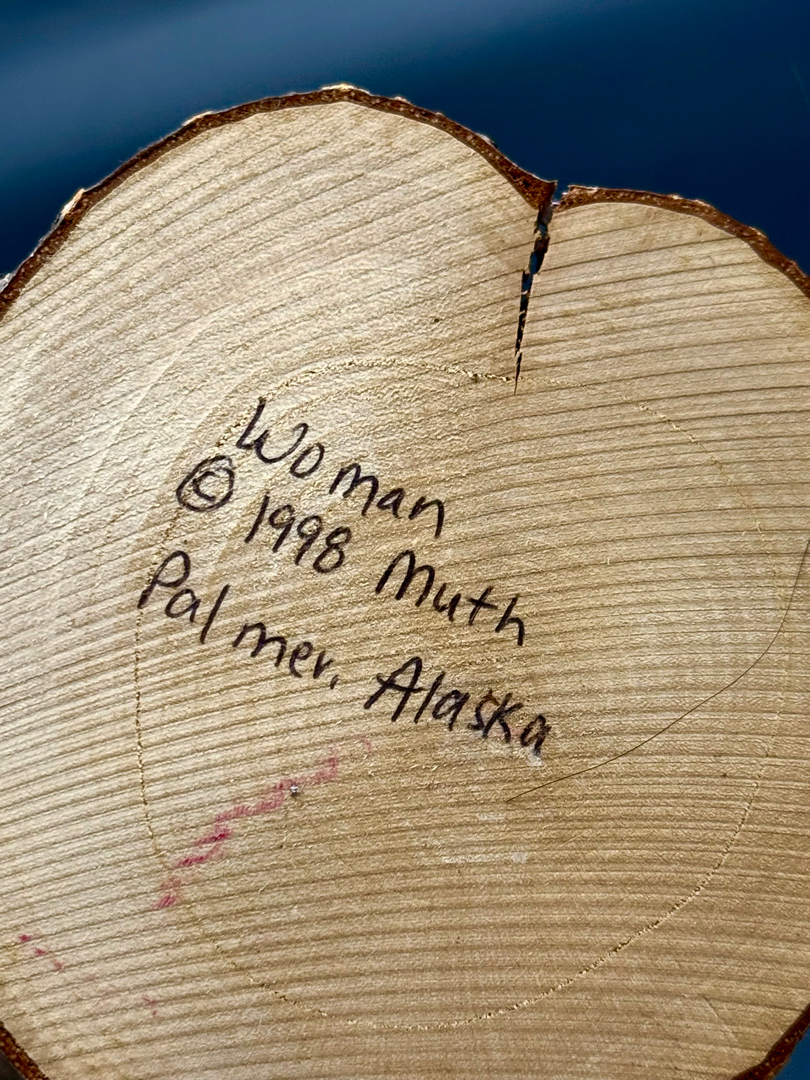 Woman
© 1998 Muth
Palmer, Alaska